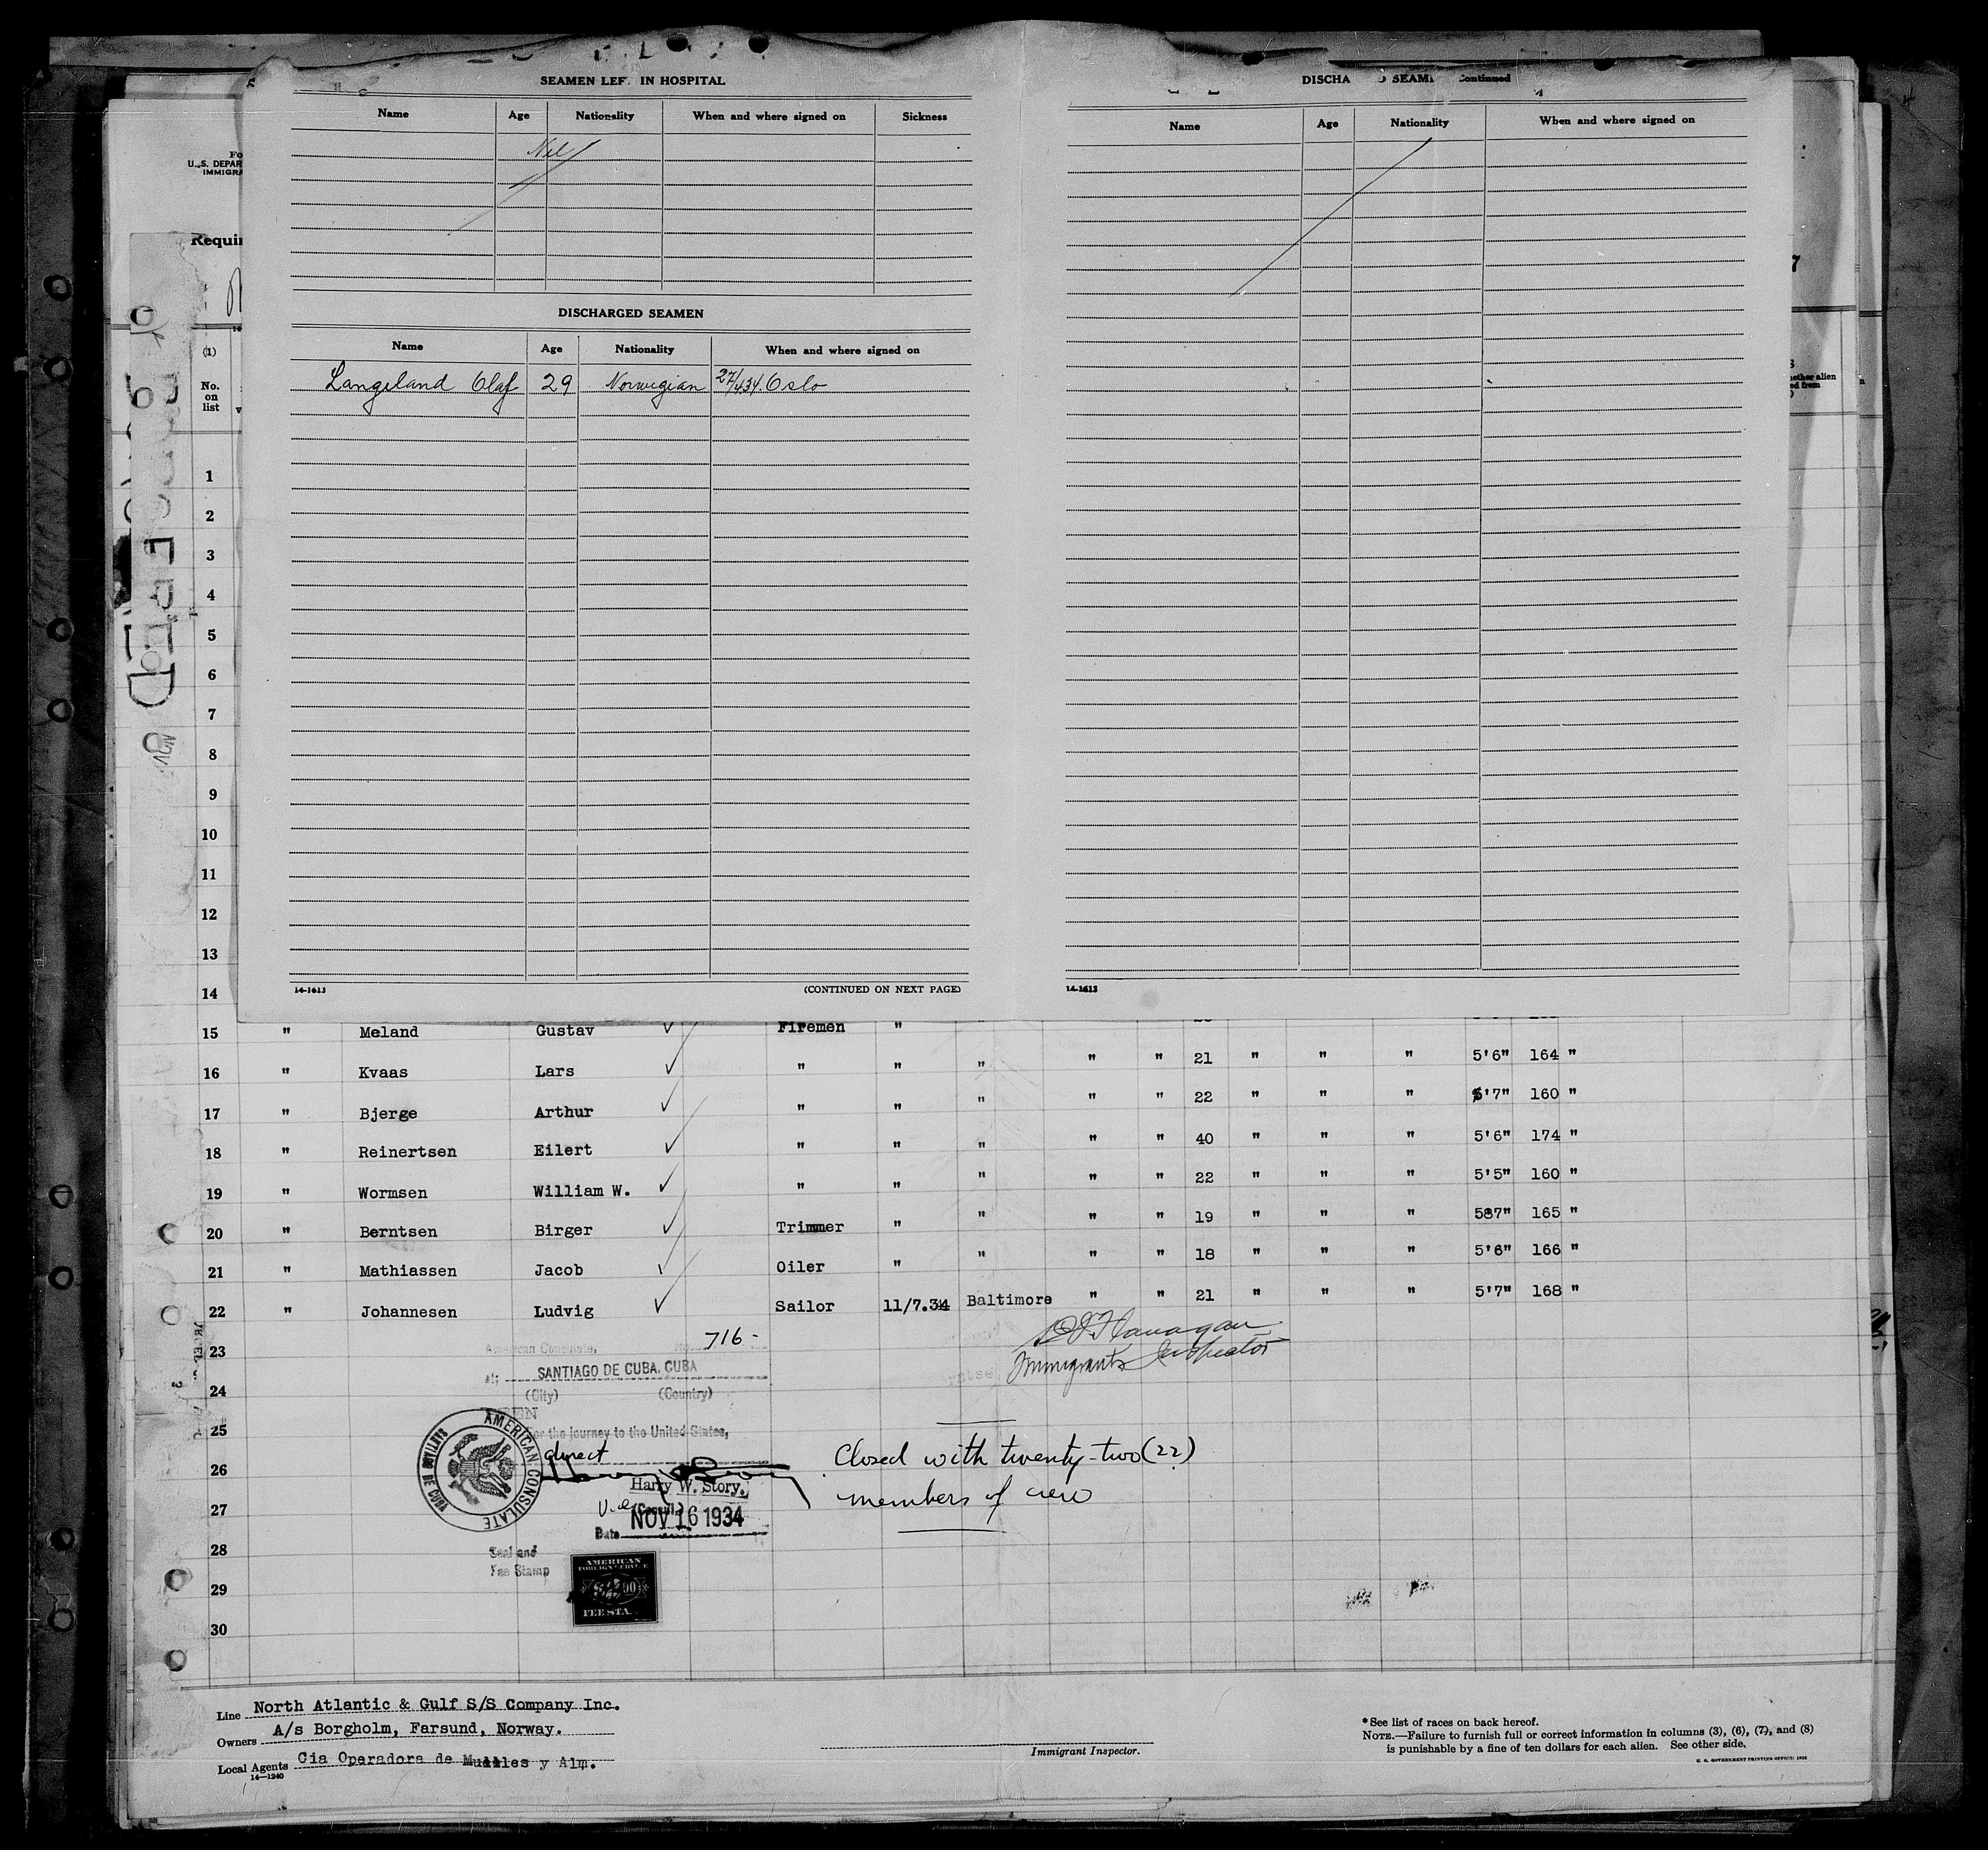 SEAMEN LEF IN HOSPITAL
Name Age Nationality When and where signed on Sickness
Nil
DISCHARGED SEAMEN
Name Age Nationality When and where signed on
Langeland Olaf 29 Norwegian 27/4.34. Oslo
14-1613 (CONTINUED ON NEXT PAGE)
DISCHA D SEAM Continued
Name Age Nationality When and where signed on
14-1613
Fo
U. S. DEPAR
IMMIGRA
Requir
(1)
No.
on
list
1
2
3
4
5
6
7
8
9
10
11
12
13
14
15 " Meland Gustav Firemen "
16 " Kvaas Lars " " " " " 21 " " " 5'6" 164 "
17 " Bjerge Arthur " " " " " 22 " " " 5'7" 160 "
18 " Reinertsen Eilert " " " " " 40 " " " 5'6" 174 "
19 " Wormsen William W. " " " " " 22 " " " 5'5" 160 "
20 " Berntsen Birger Trimmer " " " " 19 " " " 587" 165 "
21 " Mathiassen Jacob Oiler " " " " 18 " " " 5'6" 166 "
22 " Johannesen Ludvig Sailor 11/7.34 Baltimore " " 21 " " " 5'7" 168 "
23
24
25
26
27
28
29
30
716-
American Consulate,
at: SANTIAGO DE CUBA, CUBA
(City) (Country)
for the journey to the United States,
direct
Harry W. Story,
(Consul.)
Date NOV 16 1934
AMERICAN CONSULATE
SANTIAGO DE CUBA
Seal and
Fee Stamp
AMERICAN
FEE STA
Flanagan
Immigrants Inspector
Closed with twenty-two (22)
members of crew
Line North Atlantic & Gulf S/S Company Inc.
Owners A/s Borgholm, Farsund, Norway.
Local Agents Cia Operadora de Muelles y Alm.
14-1240
Immigrant Inspector.
*See list of races on back hereof.
NOTE.—Failure to furnish full or correct information in columns (3), (6), (7), and (8)
is punishable by a fine of ten dollars for each alien. See other side.
U. S. GOVERNMENT PRINTING OFFICE: 1932